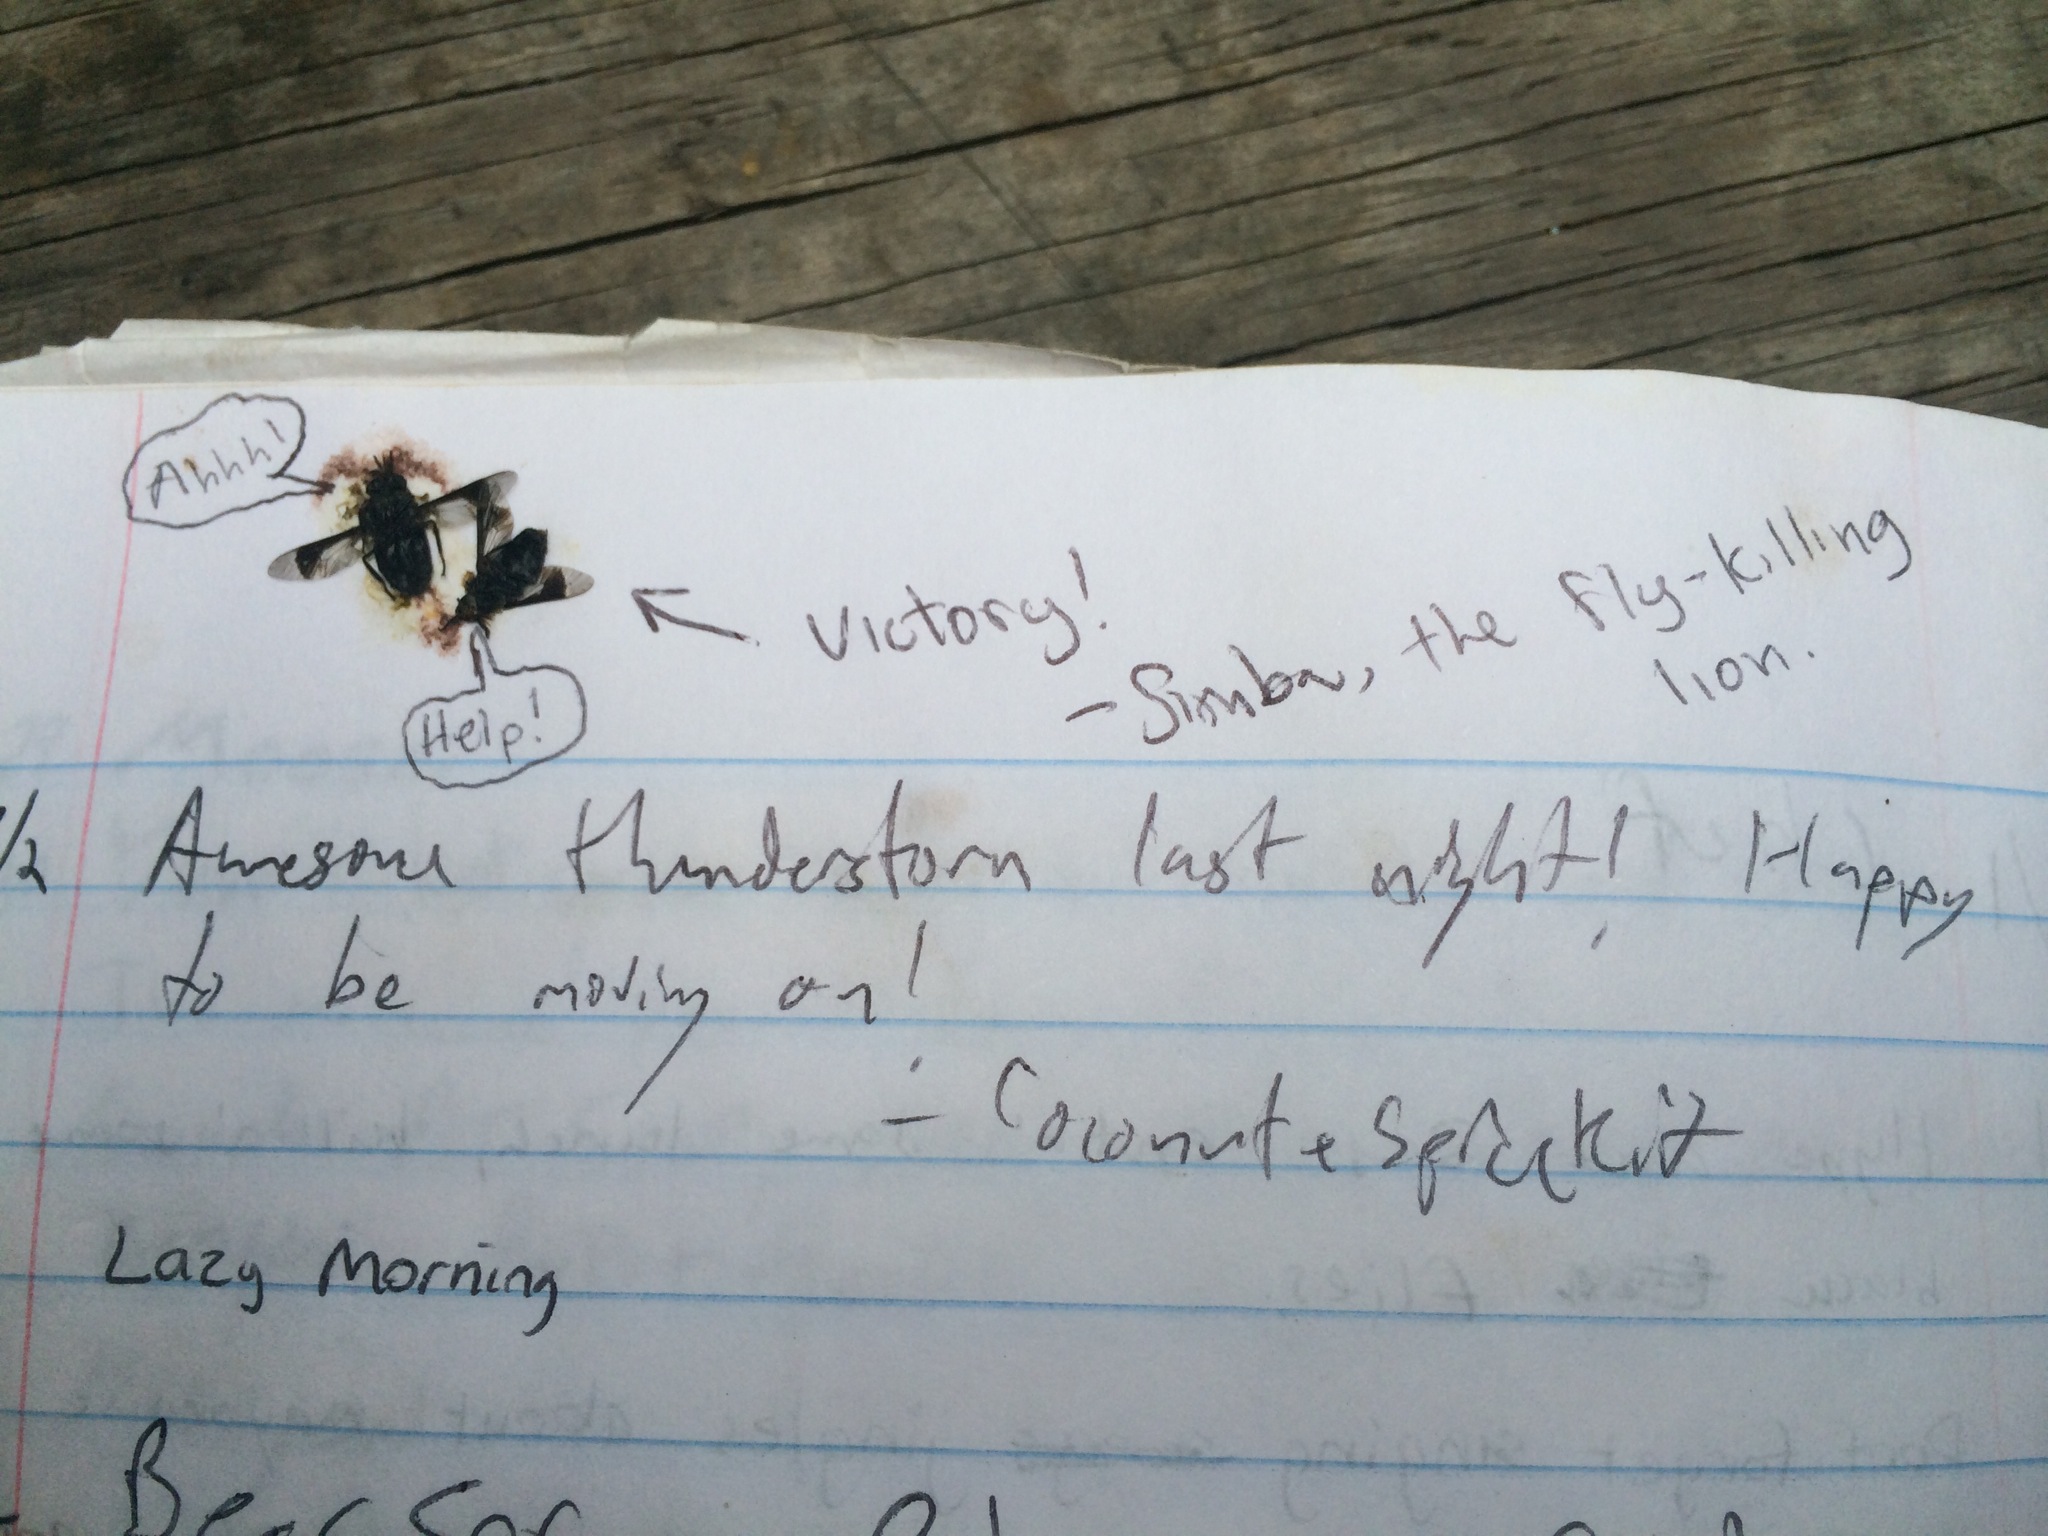 Ahhh!
Help!
Victory!
- Simba, the fly-killing
lion.
1/2 Awesome thunderstorm last night! Happy
to be moving on!
- Coconut + Spice Kit
Lazy Morning
Beer for